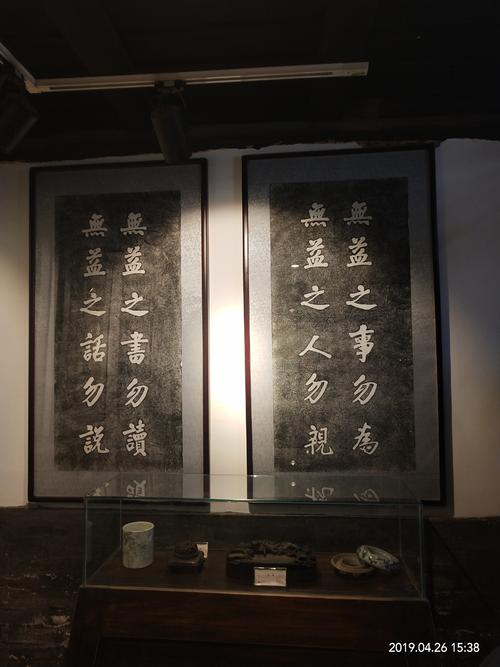 無益之事勿為
無益之人勿親
無益之書勿讀
無益之話勿説
2019.04.26 15:38